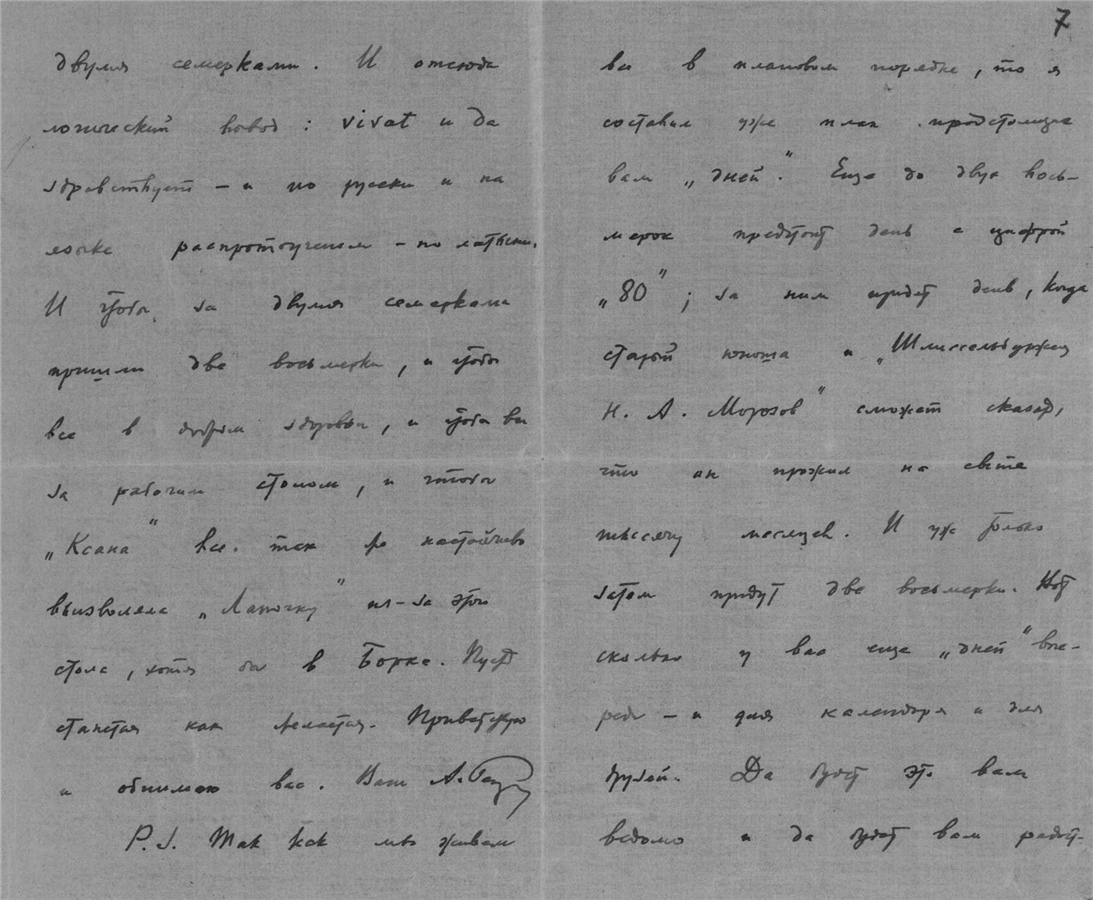 двумя семерками. И отсюда
логический вывод: vivat и да
здравствует – и по русски и на
языке распротоученом – по латыни.
И чтобы за двумя семерками
пришли две восьмерки, и чтобы
все в добром здоровьи, и чтобы вы
за рабочим столом, и чтобы
„Ксана" все так же настойчиво
вызволяла „Лапочку" из-за этого
стола, хотя бы в Борке. Пусть
станется как желается. Приветствую
и обнимаю вас. Ваш А.
P.S. Так как мы живем
7
вы в плановом порядке, то я
составил уже план предстоящих
вам „дней". Еще до двух вось-
мерок предстоит день с цифрой
„80"; за ним придет день, когда
старый юноша и „Шлиссельбуржец
Н. А. Морозов" сможет сказать,
что он прожил на свете
тысячу месяцев. И уже только
затем придут две восьмерки. Вот
сколько у вас еще „дней" впе-
реди – и для календаря и для
друзей. Да будет это вам
ведомо и да будет вам радост-